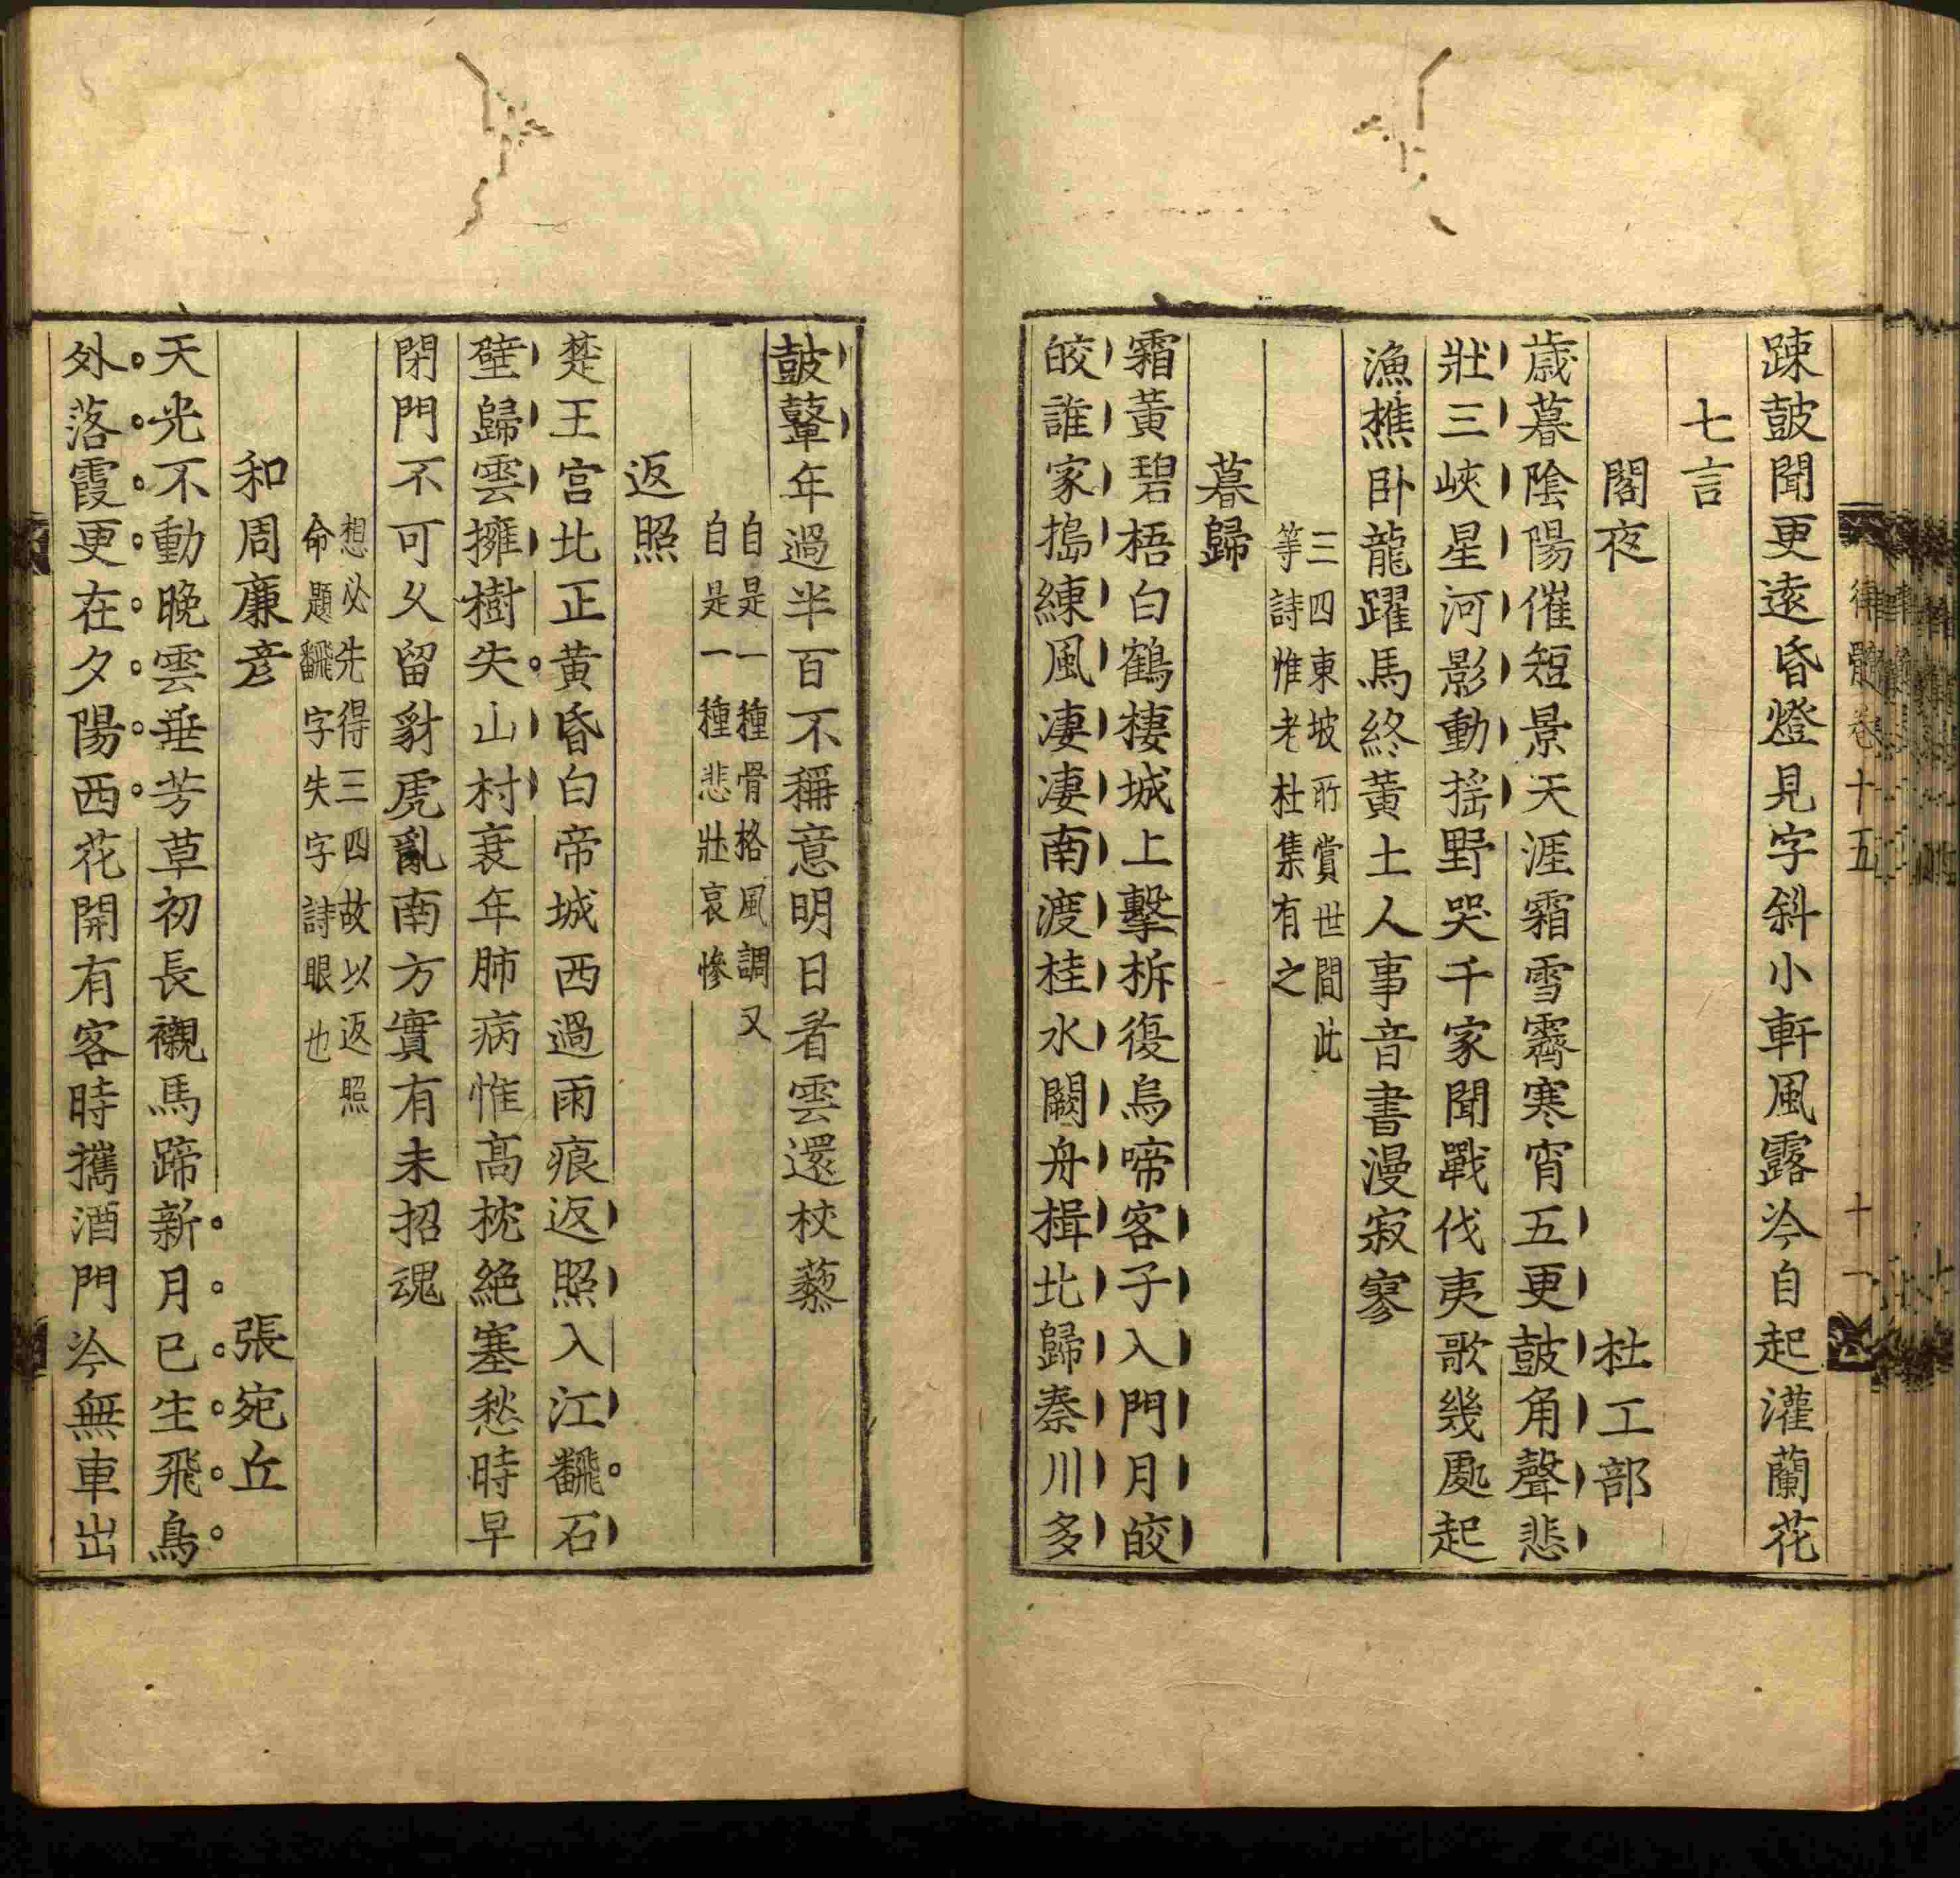 踈鼓聞更遠昏燈見字斜小軒風露冷自起灌蘭花
七言
閣夜 杜工部
歲暮陰陽催短景天涯霜雪霽寒宵五更鼓角聲悲
壯三峽星河影動揺野哭千家聞戰伐夷歌幾處起
漁樵卧龍躍馬終黃土人事音書漫寂寥
三四東坡所賞世間此
等詩惟老杜集有之
暮歸
霜黃碧梧白鶴棲城上擊柝復烏啼客子入門月皎
皎誰家搗練風凄凄南渡桂水闕舟楫北歸秦川多
律髓卷十五 十一
鼓鼙年過半百不稱意明日看雲還杖藜
自是一種骨格風調又
自是一種悲壯哀慘
返照
楚王宮北正黃昏白帝城西過雨痕返照入江飜石
壁歸雲擁樹失山村衰年肺病惟髙枕絶塞愁時早
閉門不可乆留豺虎亂南方實有未招魂
想必先得三四故以返照
命題飜字失字詩眼也
和周廉彥 張宛丘
天光不動晚雲垂芳草初長襯馬蹄新月已生飛鳥
外落霞更在夕陽西花開有客時攜酒門冷無車出